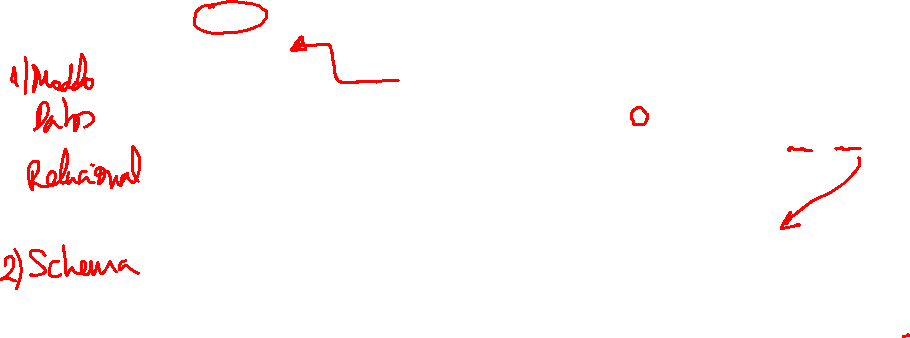 1) Modelo
Datos
Relacional
2) Schema